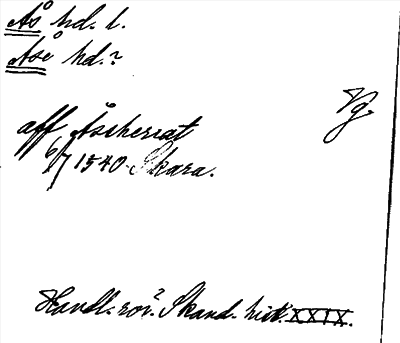 Ås hd. l.
Åse hd.?
Vg.
aff Åsshersat
6/7 1540. Skara.
Handl. rör? Skand. hist. XXIX.